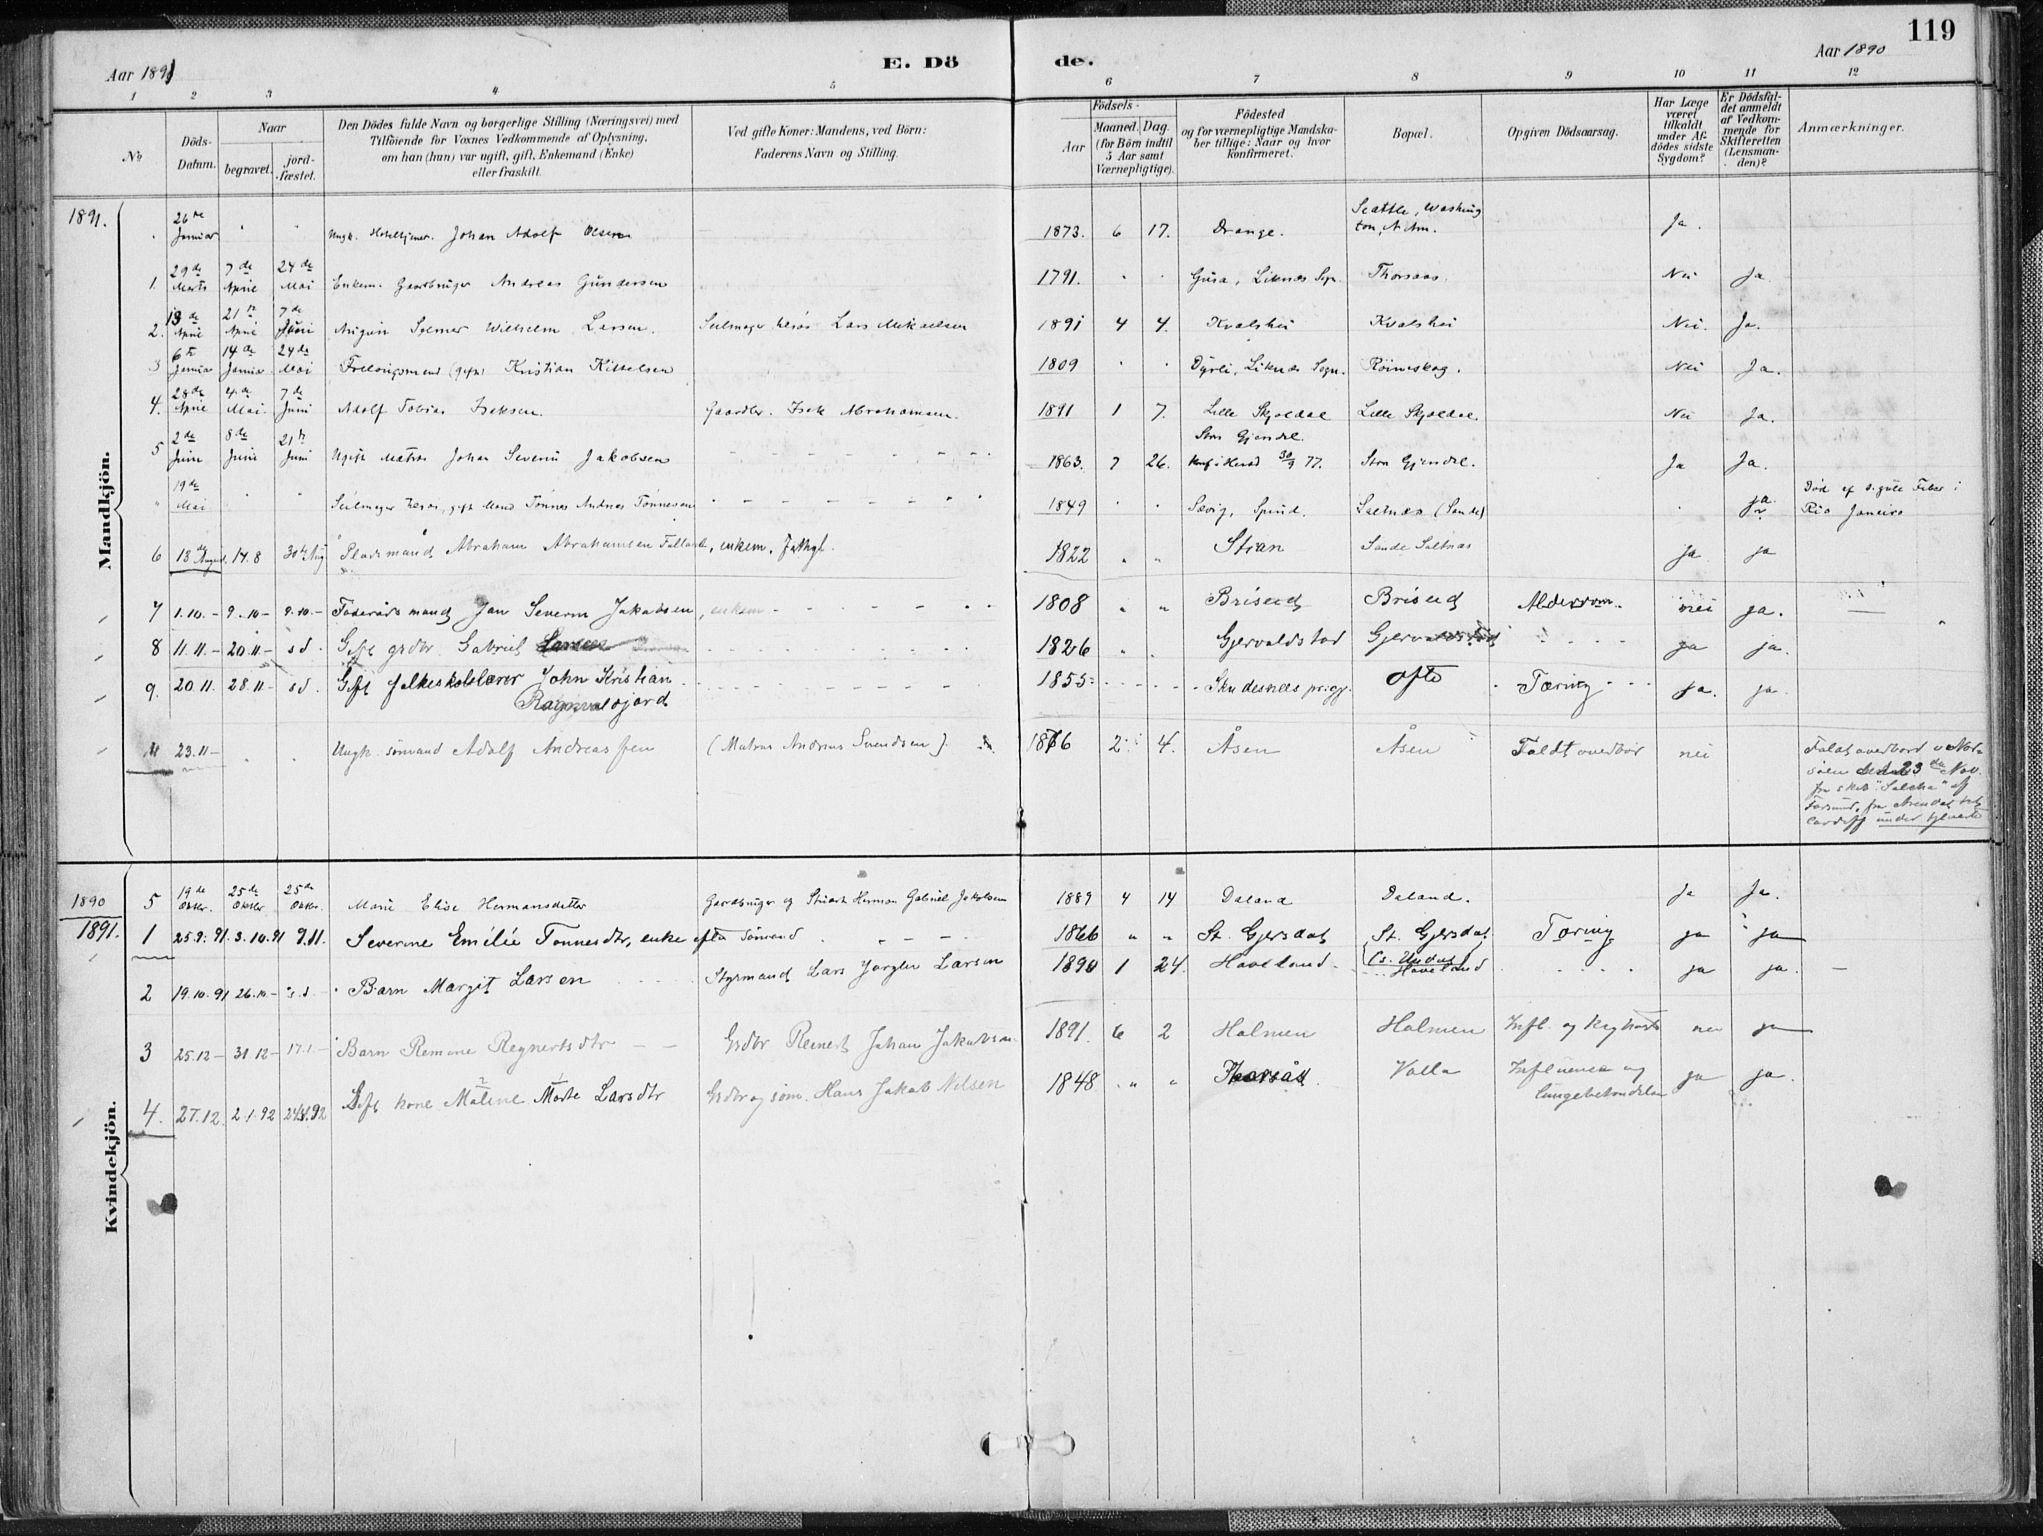 119
Aar 1891
E. Dö
de.
Aar 1890
1 2 3 4 5 6 7 8 9 10 11 12
No
Döds-Datum.
Naar
begravet.
jord-fæstet.
Den Dödes fulde Navn og borgerlige Stilling (Næringsvei) med
Tilföiende for Voxnes Vedkommende af Oplysning,
om han (hun) var ugift, gift, Enkemand (Enke)
eller fraskilt.
Ved gifte Koner: Mandens, ved Börn:
Faderens Navn og Stilling.
Födsels-
Aar
Maaned. Dag.
(for Börn indtil
5 Aar samt
Værnepligtige).
Födested
og for værnepligtige Mandska-
ber tillige: Naar og hvor
konfirmeret.
Bopæl.
Opgiven Dödsaarsag.
Har Læge
været
tilkaldt
under Af-
dödes sidste
Sygdom?
Er Dödsfal-
det anmeldt
af Vedkom-
mende for
Skifteretten
(Lensman-
den)?
Anmærkninger.
Mandkjön.
1891.
26de Januar Ungk. Johan Adolf Olsen 1873. 6 17. Drange. Seattle, Washing ton, N. Am. Ja.
1. 29de Marts 7de April 24de Mai Enkem. Gaardbruger Andreas Gundersen 1791. Gusa, Liknæs Sogn Thorsaas. Nei Ja.
2. 13de April 21de April 7de Juni August Selmer Wilhelm Larsen. Seilmager Lars Mikaelsen 1891 4 4. Kvalshei Kvalshei Nei. Ja.
3 6te Januar 14de Januar 24de Mai (gift) Kristian Kittelsen 1809 Dyrli, Liknæs Sogn. Röineskog. Nei Ja.
4. 28de April 4de Mai. 7de Juni Adolf Tobias Iseksen. Gaardbr. Isek Abrahamsen. 1891 1 7. Lille Skjoldal Lille Skjoldal. Nei Ja.
5 2de Juni 8de Juni 21de Juni Ugift Matros Johan Severin Jakobsen 1863. 7 26. Store Gjersdal. 30/9 77. Store Gjersdal. Ja Ja.
" 19de Mai Seilmager gift Mand Tönnes Andreas Tönnesen 1849 Sævig, Spind. Saltnæs (Sande) Ja Död af d. gule Feber i Rio Janeiro
6 13de August. 14.8 30te Aug Pladsmand Abraham Abrahamsen enkem. 1822 " " Stran Sande Saltnæs ja ja
7 1.10.- 9.10- 9.10.- Föderådsmand Jan Severin Jakobsen, enkem 1808 " " Briseid Briseid Alderdom. nei ja.
8 11.11.- 20.11- s d. Gift grdbr. Gabriel 1826 Gjervoldstad ja ja.
9. 20.11. 28.11- s d. Gift folkeskolelærer John Kristian 1855 Skudesnes prgj. Ofte Tæring ja. ja.
11 23.11- Ungk. sömand Adolf Andreassen (Matros Andreas Svendsen). 1876 2 4. Åsen Åsen Faldt overbor nei Faldt overbord i Nord-
söen 23de Nov.
fra skib af
Farsund, fra Arendal til
Cardiff
Kvindekjön.
1890 5 19de Oktbr. 25de Oktbr 25de Oktbr. Marie Elise Hermansdatter Gaardbruger og Stuert Herman Gabriel Jakobsen 1889 4 14 Daland Daland. Ja Ja.
1891. 1 25.9. 91. 3.10.91 9.11. Severine Emilie Tonnesdtr, enke efter sömand 1866 " " St. Gjersdal St. Gjersdal Tæring ja ja
2 19.10.91 26.10- s.d. Barn Margit Larsen Styrmand Lars Jörgen Larsen 1890 1 24. Haveland Haveland ja ja. -
3 25.12- 31.12- 17.1.- Barn Remine Regnertsdtr Grdbr Reinert Johan Jakobsen 1891. 6 2 Holmen Holmen Infl. og nei ja
4. 27.12. 2.1.92 Gift kone Maline Marte Larsdtr Grdbr og söm. Hans Jakob Nilsen 1848 " " Thorsås. Volla Influensa og
lungebetændelse ja ja.